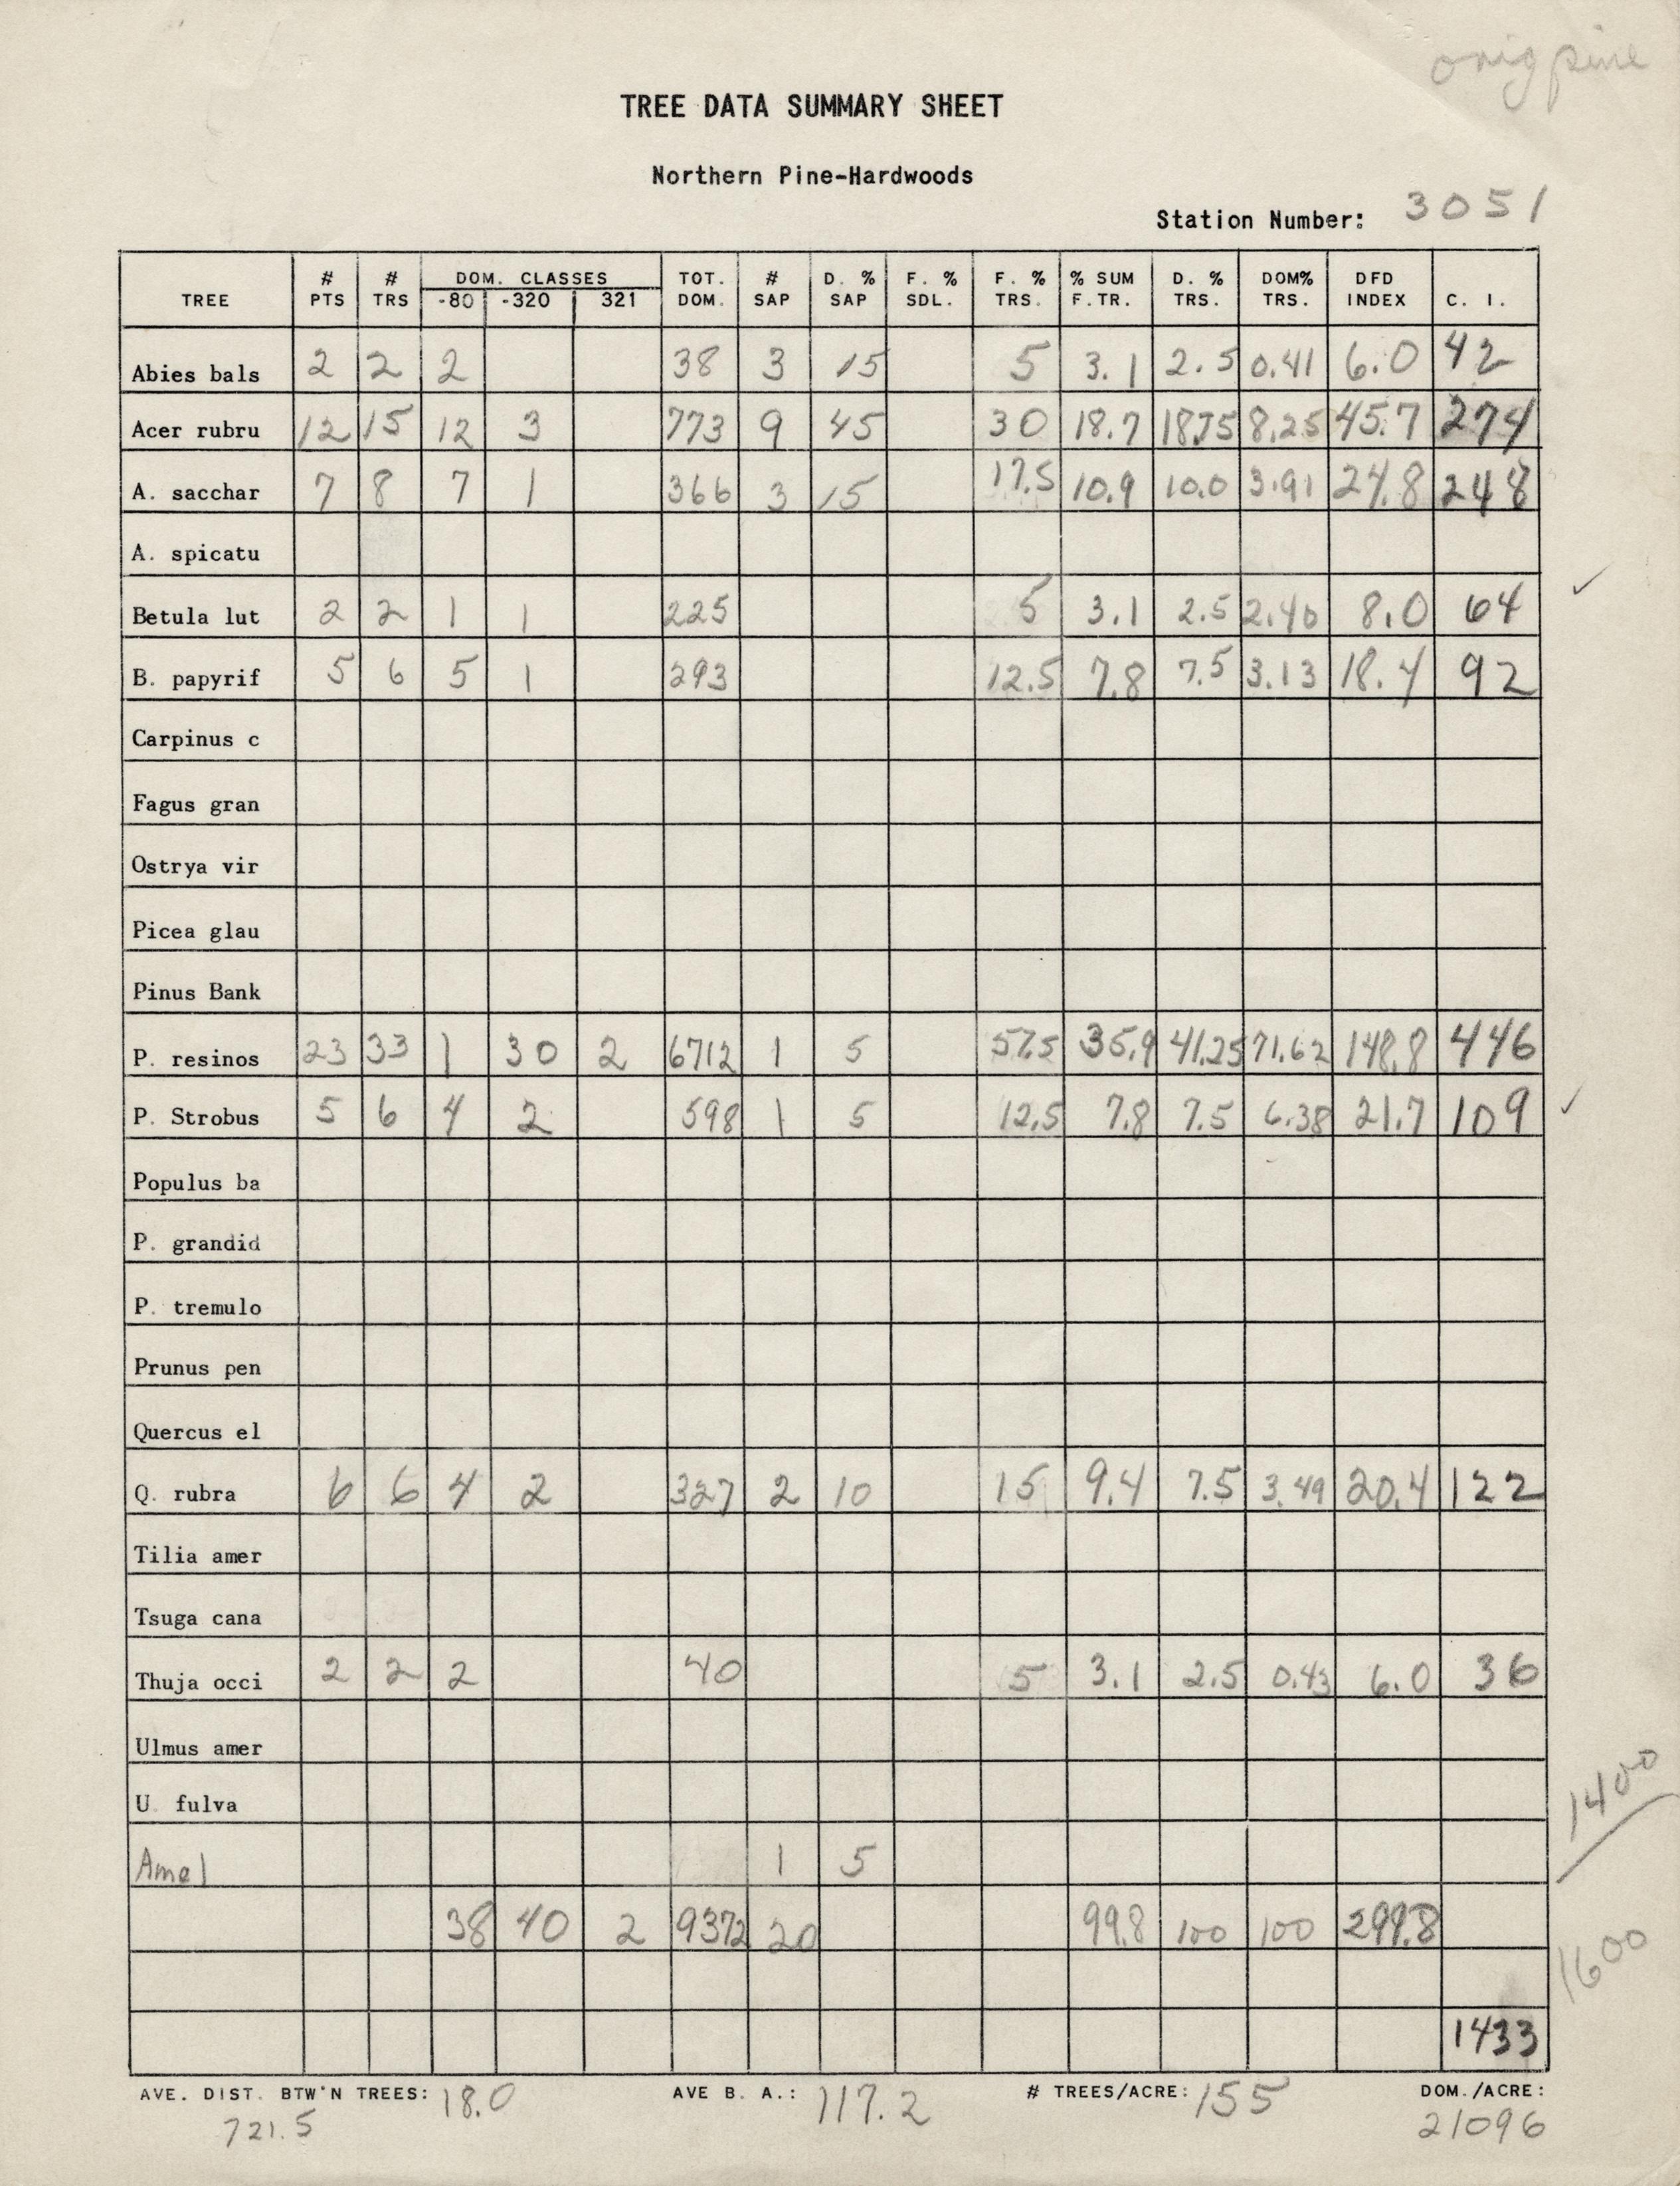 orig pine
TREE DATA SUMMARY SHEET
Northern Pine-Hardwoods
Station Number: 3051
TREE # PTS # TRS DOM. CLASSES -80 -320 321 TOT. DOM. # SAP D. % SAP F. % SDL. F. % TRS. % SUM F. TR. D. % TRS. DOM% TRS. DFD INDEX C. I.
Abies bals 2 2 2 38 3 15 5 3.1 2.5 0.41 6.0 42
Acer rubru 12 15 12 3 773 9 45 30 18.7 18.75 8.25 45.7 274
A. sacchar 7 8 7 1 366 3 15 17.5 10.9 10.0 3.91 24.8 248
A. spicatu
Betula lut 2 2 1 1 225 5 3.1 2.5 2.40 8.0 64
B. papyrif 5 6 5 1 293 12.5 7.8 7.5 3.13 18.4 92
Carpinus c
Fagus gran
Ostrya vir
Picea glau
Pinus Bank
P. resinos 23 33 1 30 2 6712 1 5 57.5 35.9 41.25 71.62 148.8 446
P. Strobus 5 6 4 2 598 1 5 12.5 7.8 7.5 6.38 21.7 109
Populus ba
P. grandid
P. tremulo
Prunus pen
Quercus el
Q. rubra 6 6 4 2 327 2 10 15 9.4 7.5 3.49 20.4 122
Tilia amer
Tsuga cana
Thuja occi 2 2 2 40 5 3.1 2.5 0.43 6.0 36
Ulmus amer
U. fulva
1400
Amel 1 5
38 40 2 9372 20 99.8 100 100 299.8
1600
1433
AVE. DIST. BTW'N TREES: 18.0 AVE B. A.: 117.2 # TREES/ACRE: 155 DOM./ACRE:
721.5 21096